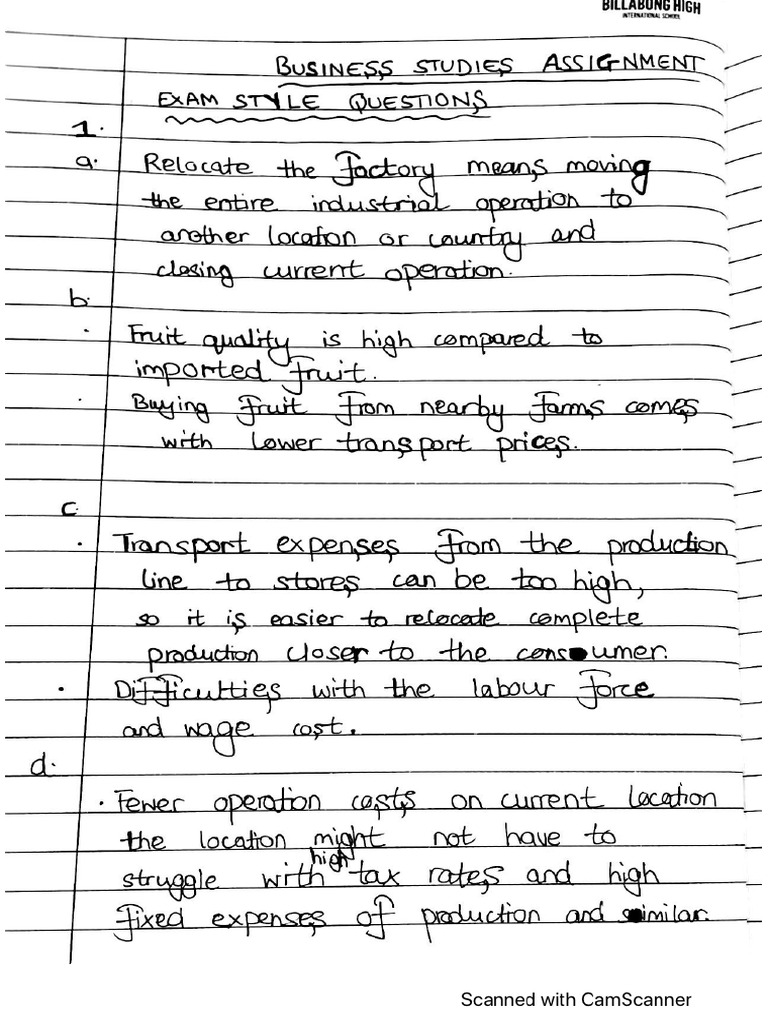 BILLABONG HIGH
INTERNATIONAL SCHOOL
BUSINESS STUDIES ASSIGNMENT
EXAM STYLE QUESTIONS
1.
a. Relocate the factory means moving
the entire industrial operation to
another location or country and
closing current operation.
b.
. Fruit quality is high compared to
imported fruit.
. Buying fruit from nearby farms comes
with lower transport prices.
c
. Transport expenses from the production
line to stores can be too high,
so it is easier to relocate complete
production closer to the consumer.
. Difficulties with the labour force
and wage cost.
d.
. Fewer operation costs on current location
the location might not have to
struggle with high tax rates and high
fixed expenses of production and similar.
Scanned with CamScanner